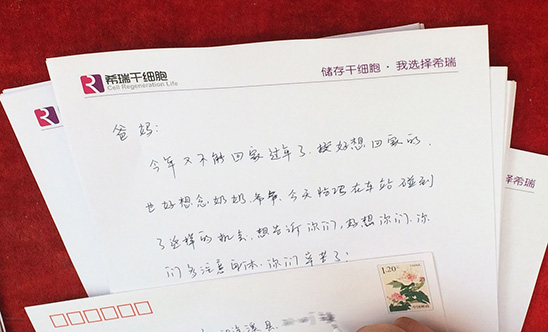 希瑞干细胞
Cell Regeneration Life
储存干细胞 · 我选择希瑞
爸妈:
今年又不能回家过年了,好想回家的,
也好想念奶奶,今天恰巧在车站碰到
了这样的机会,想告诉你们,好想你们,你
们多注意身体,你们辛苦了!
选择希瑞
1.20
县